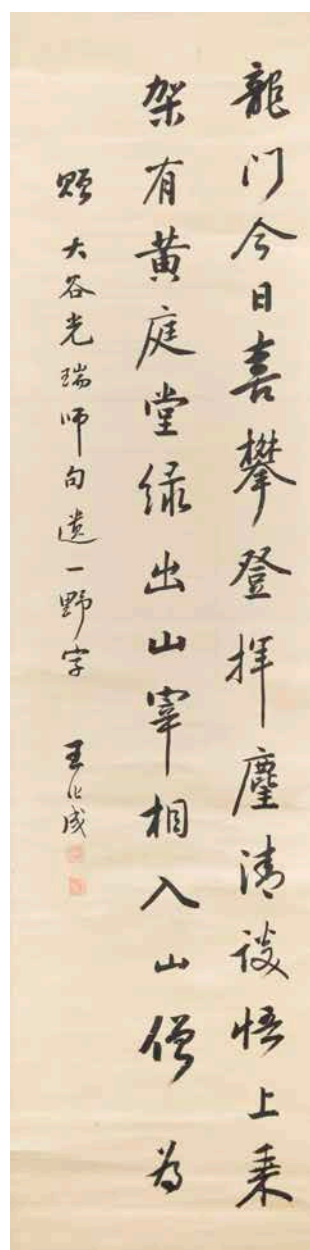 龍门今日喜攀登揮麈清談悟上乘
架有黄庭堂緑出山宰相入山僧為
贈大谷光瑞師句遺一野字 王化成